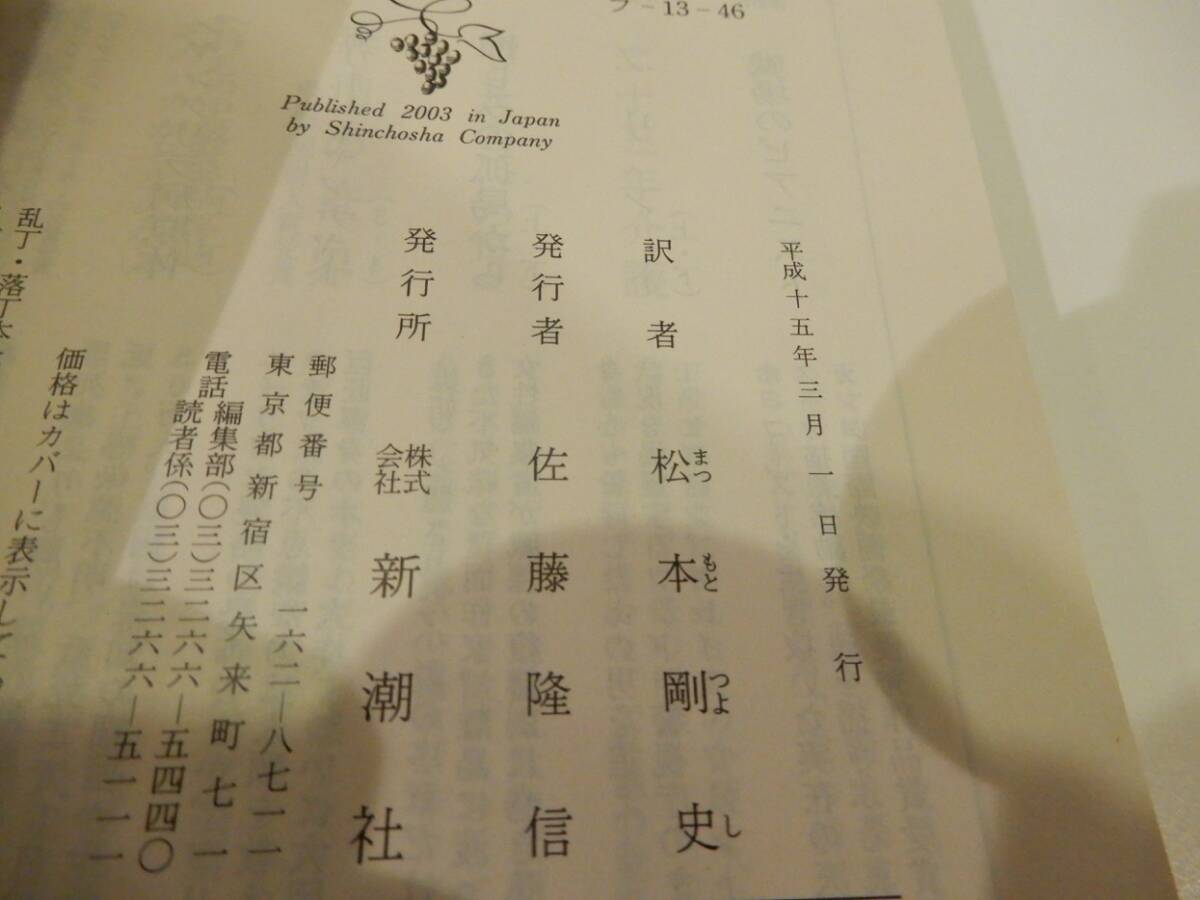 フ-13-46
Published 2003 in Japan
by Shinchosha Company
平成十五年三月一日発行
訳者 松本剛史
まつもとつよし
発行者 佐藤隆信
発行所 株式会社 新潮社
郵便番号 一六二―八七一一
東京都新宿区矢来町七一
電話 編集部(〇三)三二六六―五四四〇
読者係(〇三)三二六六―五一一一
価格はカバーに表示して
乱丁・落丁本